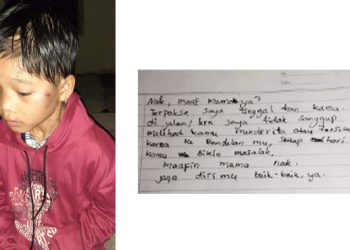 Nak, maaf mama ya?
Terpaksa saya tinggal kan kamu.
di jalan, krn saya tidak sanggup
melihat kamu menderita atau tersiksa
karna ke Bandalan mu, setiap hari
kamu bikin masalah.
maafin mama nak.
jaga diri mu baik-baik, ya.